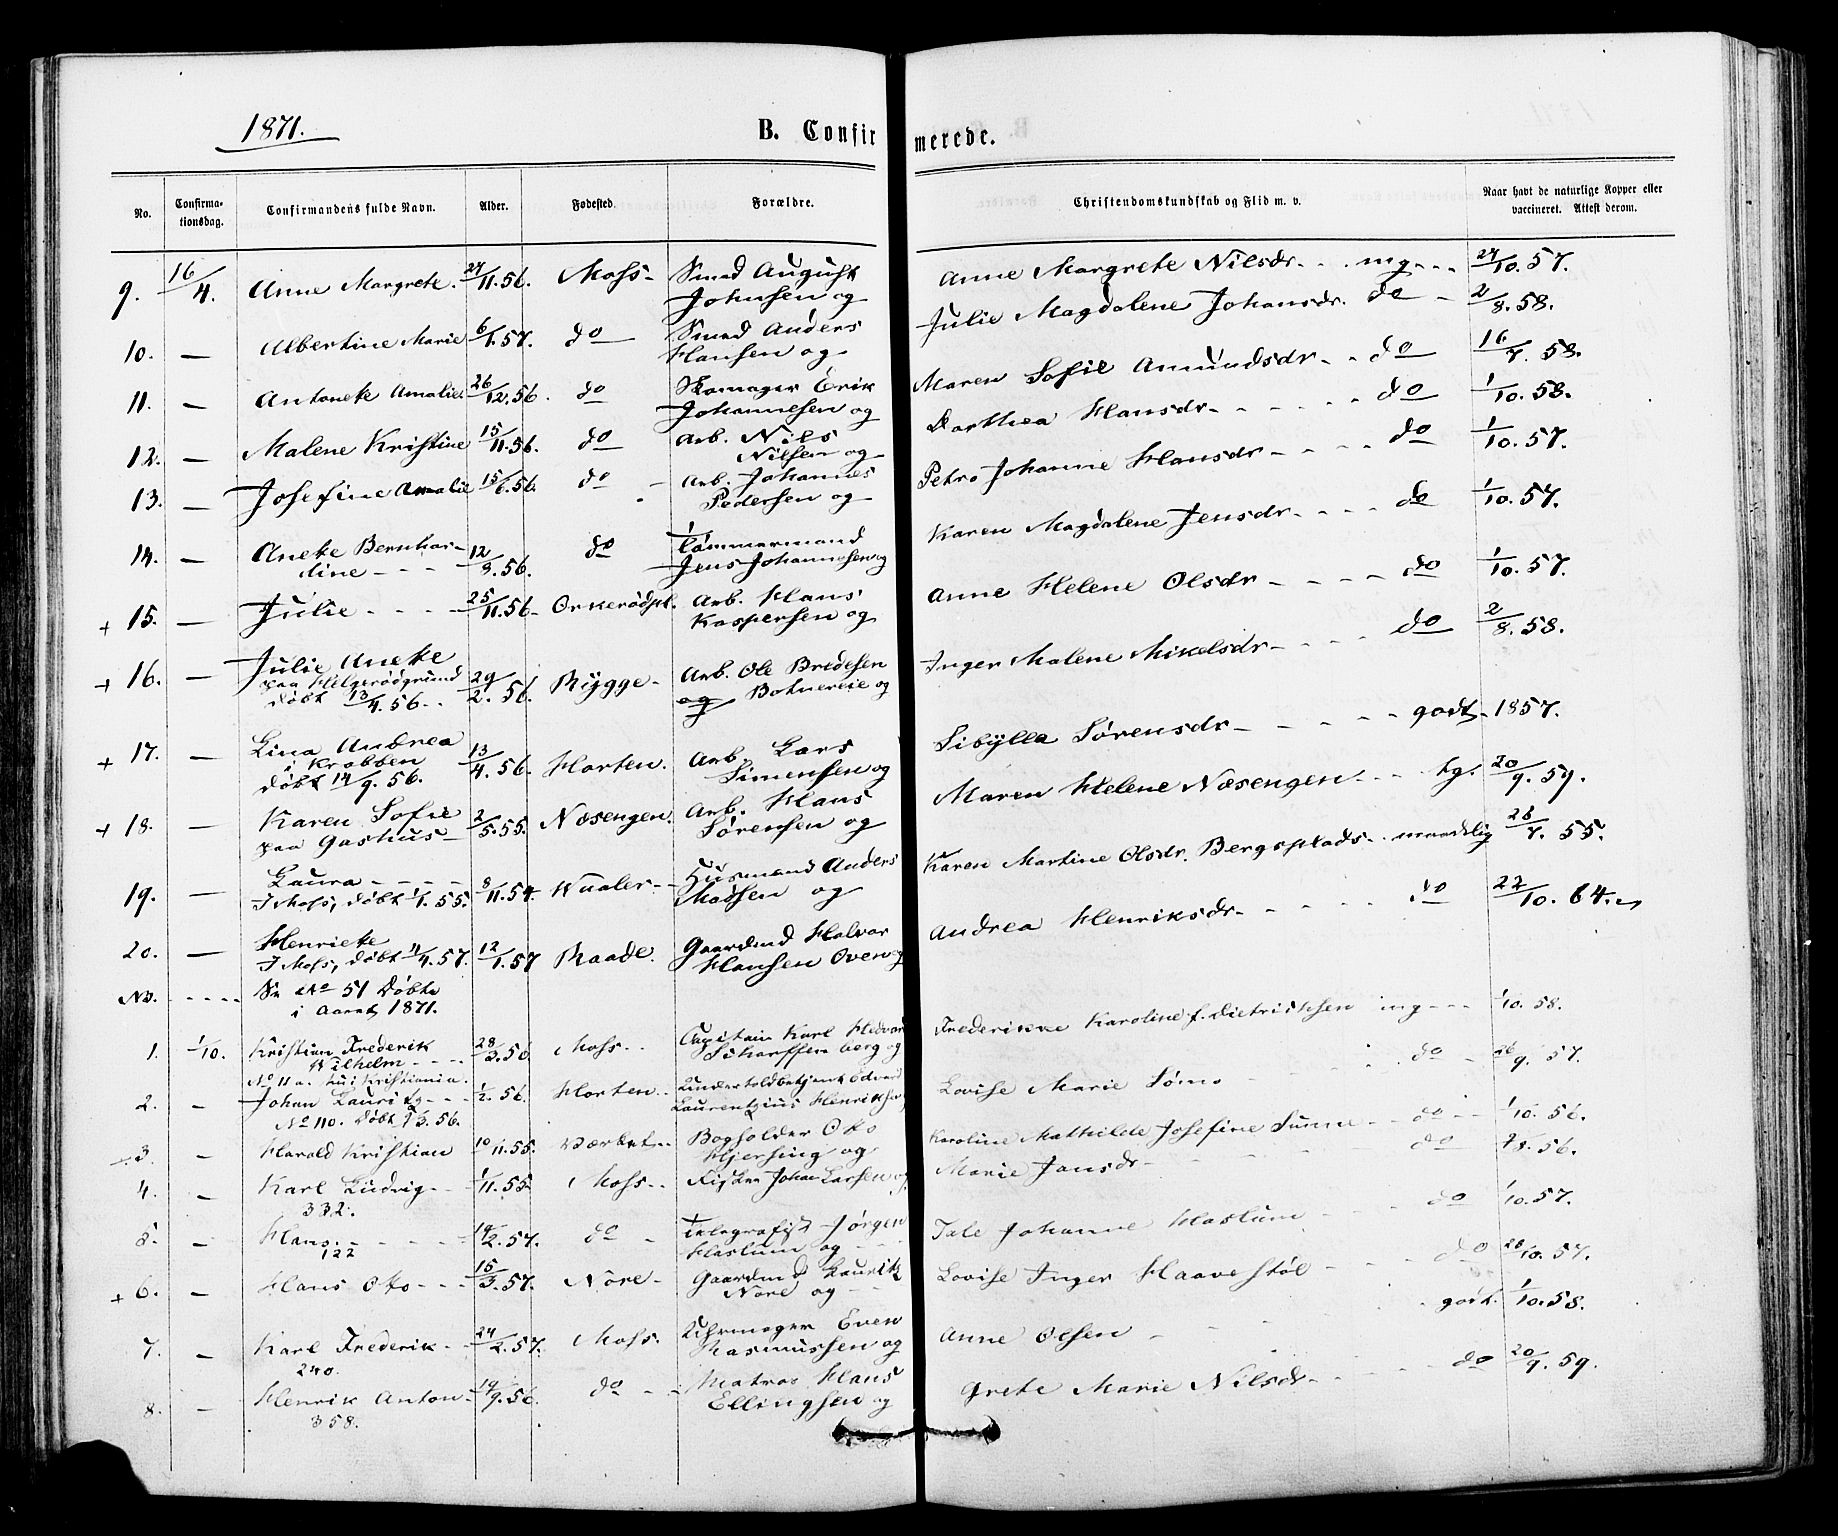 1871.
B. Confirmerede.
No. Confirmationsdag. Confirmandens fulde Navn. Alder. Fødested. Forældre. Christendomskundskab og Flid m. v. Naar havt de naturlige Kopper eller vaccineret. Attest derom.
9. 16/4. Anne Margrete. 27/11.56. Moss - Smed August Johnsen og Anne Margrete Nilsdr. - - mg - - 24/10.57.
10. — Albertine Marie 6/1.57. do Smed Anders Hansen og Julie Magdalene Johansdr. do - 2/8.58.
11. — Antonete Amalie. 26/12.56. do Skomager Erik Johannesen og Maren Sofie Amundsdr - - do 16/7.58.
12. — Malene Kristine 15/11.56. do Arb. Nils Nilsen og Dorthea Hansdr - - - do 1/10.58.
13. — Josefine Amalie 15/6.56. do - Arb. Johannes Pedersen og Petra Johanne Hansdr - - - do 1/10.57.
14. — Anette Bernhardine - - - 12/9.56. do Tømmermand Jens Johannesen og Karen Magdalene Jensdr - - - do 1/10.57.
+ 15. — Julie - - - - 25/11.56 - Orkerødpl. Arb. Hans Kaspersen og Anne Helene Olsdr - - - - do 1/10.57.
+ 16. — Julie Anette paa Helgerødgrund døbt 13/4.56. - 29/2.56. Rygge - Arb. Ole Bredesen og Botnereie og Inger Malene Mikelsdr - - - do 2/8.58.
+ 17. — Lina Andrea i Krabben døbt 14/9.56. 13/4.56. Horten. Arb. Lars Simensen og Sibylla Sørensdr - - - - godt - 1857.
+ 18. — Karen Sofie paa Gashus - 2/5.55. Næsengen. Arb. Hans Sørensen og Maren Helene Næsengen - - - tg. 20/9.59.
19. — Laura - - - - I Moss, døbt 1/1.55. 8/11.54. Vaaler - - Husmand Anders Madsen og Karen Martine Olsdr. Bergsplads - maadelig 26/7.55.
20. — Henriette I Moss, døbt 11/4.57. 12/1.57 Raade. Gaardmd Halvor Hansen Oven og Andrea Henriksdr - - - - do 22/10.64.
Nb. - - - - Se No 51 Døbte i Aaret 1871.
1. 1/10. Kristian Frederik Wilhelm - - - - No 11 a. hui Kristiania. 28/3.56 Moss - Capitain Karl Hedvard Scharffenberg og Frederikke Karoline f. Dietrichsen mg - - - 1/10.58.
2. - Johan Lauritz - - - No 110. Døbt 3.56. 1/2.56. Horten - - Edvard Laurentzius Henriksen Lovise Marie Sømo - - - do - 26/9.57.
3. - Harald Kristian 10/11.55. Værket - - Bogholder Otto Hjersing og Karoline Mathilde Josefine Sunne - - do - - 1/10.56.
4. - Karl Ludvig - - 332. 1/11.55. Moss - - Fisker Johan Larsen og Marie Jansdr - - - do 7/8.56.
5. - Hans. - - - - 122 19/2.57. do - Telegrafist Jørgen Haslum og Tale Johanne Haslum - - - do 1/10.57.
+ 6. - Hans Otto - - - 15/3.57. Nore - Gaardmd Laurik Nore og Lovise Inger Haavestøl - - - do 28/10.57.
7. - Karl Frederik - - 240. 24/2.57. Moss. Uhrmager Even Rasmussen og Anne Olsen - - - godt. 1/10.58.
8. - Henrik Anton - 358. 19/9.56. do - - Matros Hans Ellingsen og Grete Marie Nilsdr - - - do 20/9.59.